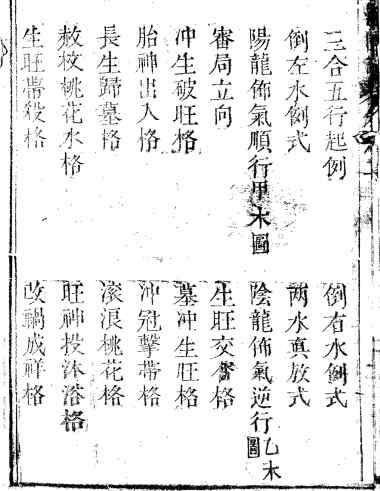 三合五行起例
倒右水倒式
倒左水倒式
两水真放式
陽龍佈氣順行甲木圖
陰龍佈氣逆行乙木圖
審局立向
生旺交奪格
冲生破旺格
墓冲生旺格
胎神出入格
冲冠擊帶格
長生歸墓格
滚浪桃花格
救敉桃花水格
旺神投沐浴格
生旺帶殺格
改禍成祥格